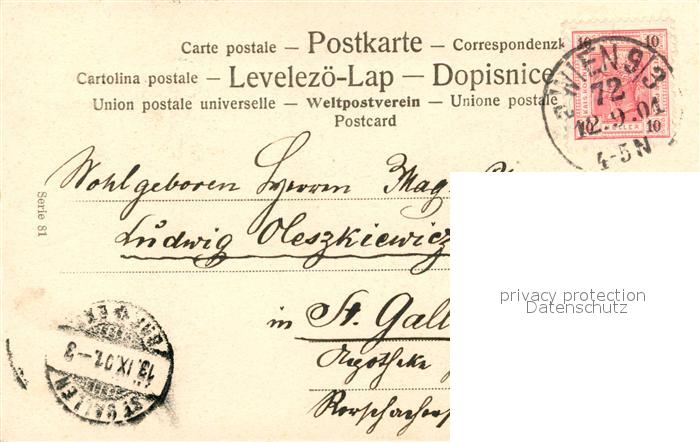 Carte postale — Postkarte — Correspondenzk
Cartolina postale — Levelezö-Lap — Dopisnice
Union postale universelle — Weltpostverein — Unione postale
Postcard
10 10
WIEN 9/3
72
12.9.01
4-5N
10 10
Wohlgeboren Herrn Mag.
Ludwig Oleszkiewicz
in St. Gall
Apotheke
Rorschacherst
Serie 81
13.IX.01.-3
ST. GALLEN
privacy protection
Datenschutz